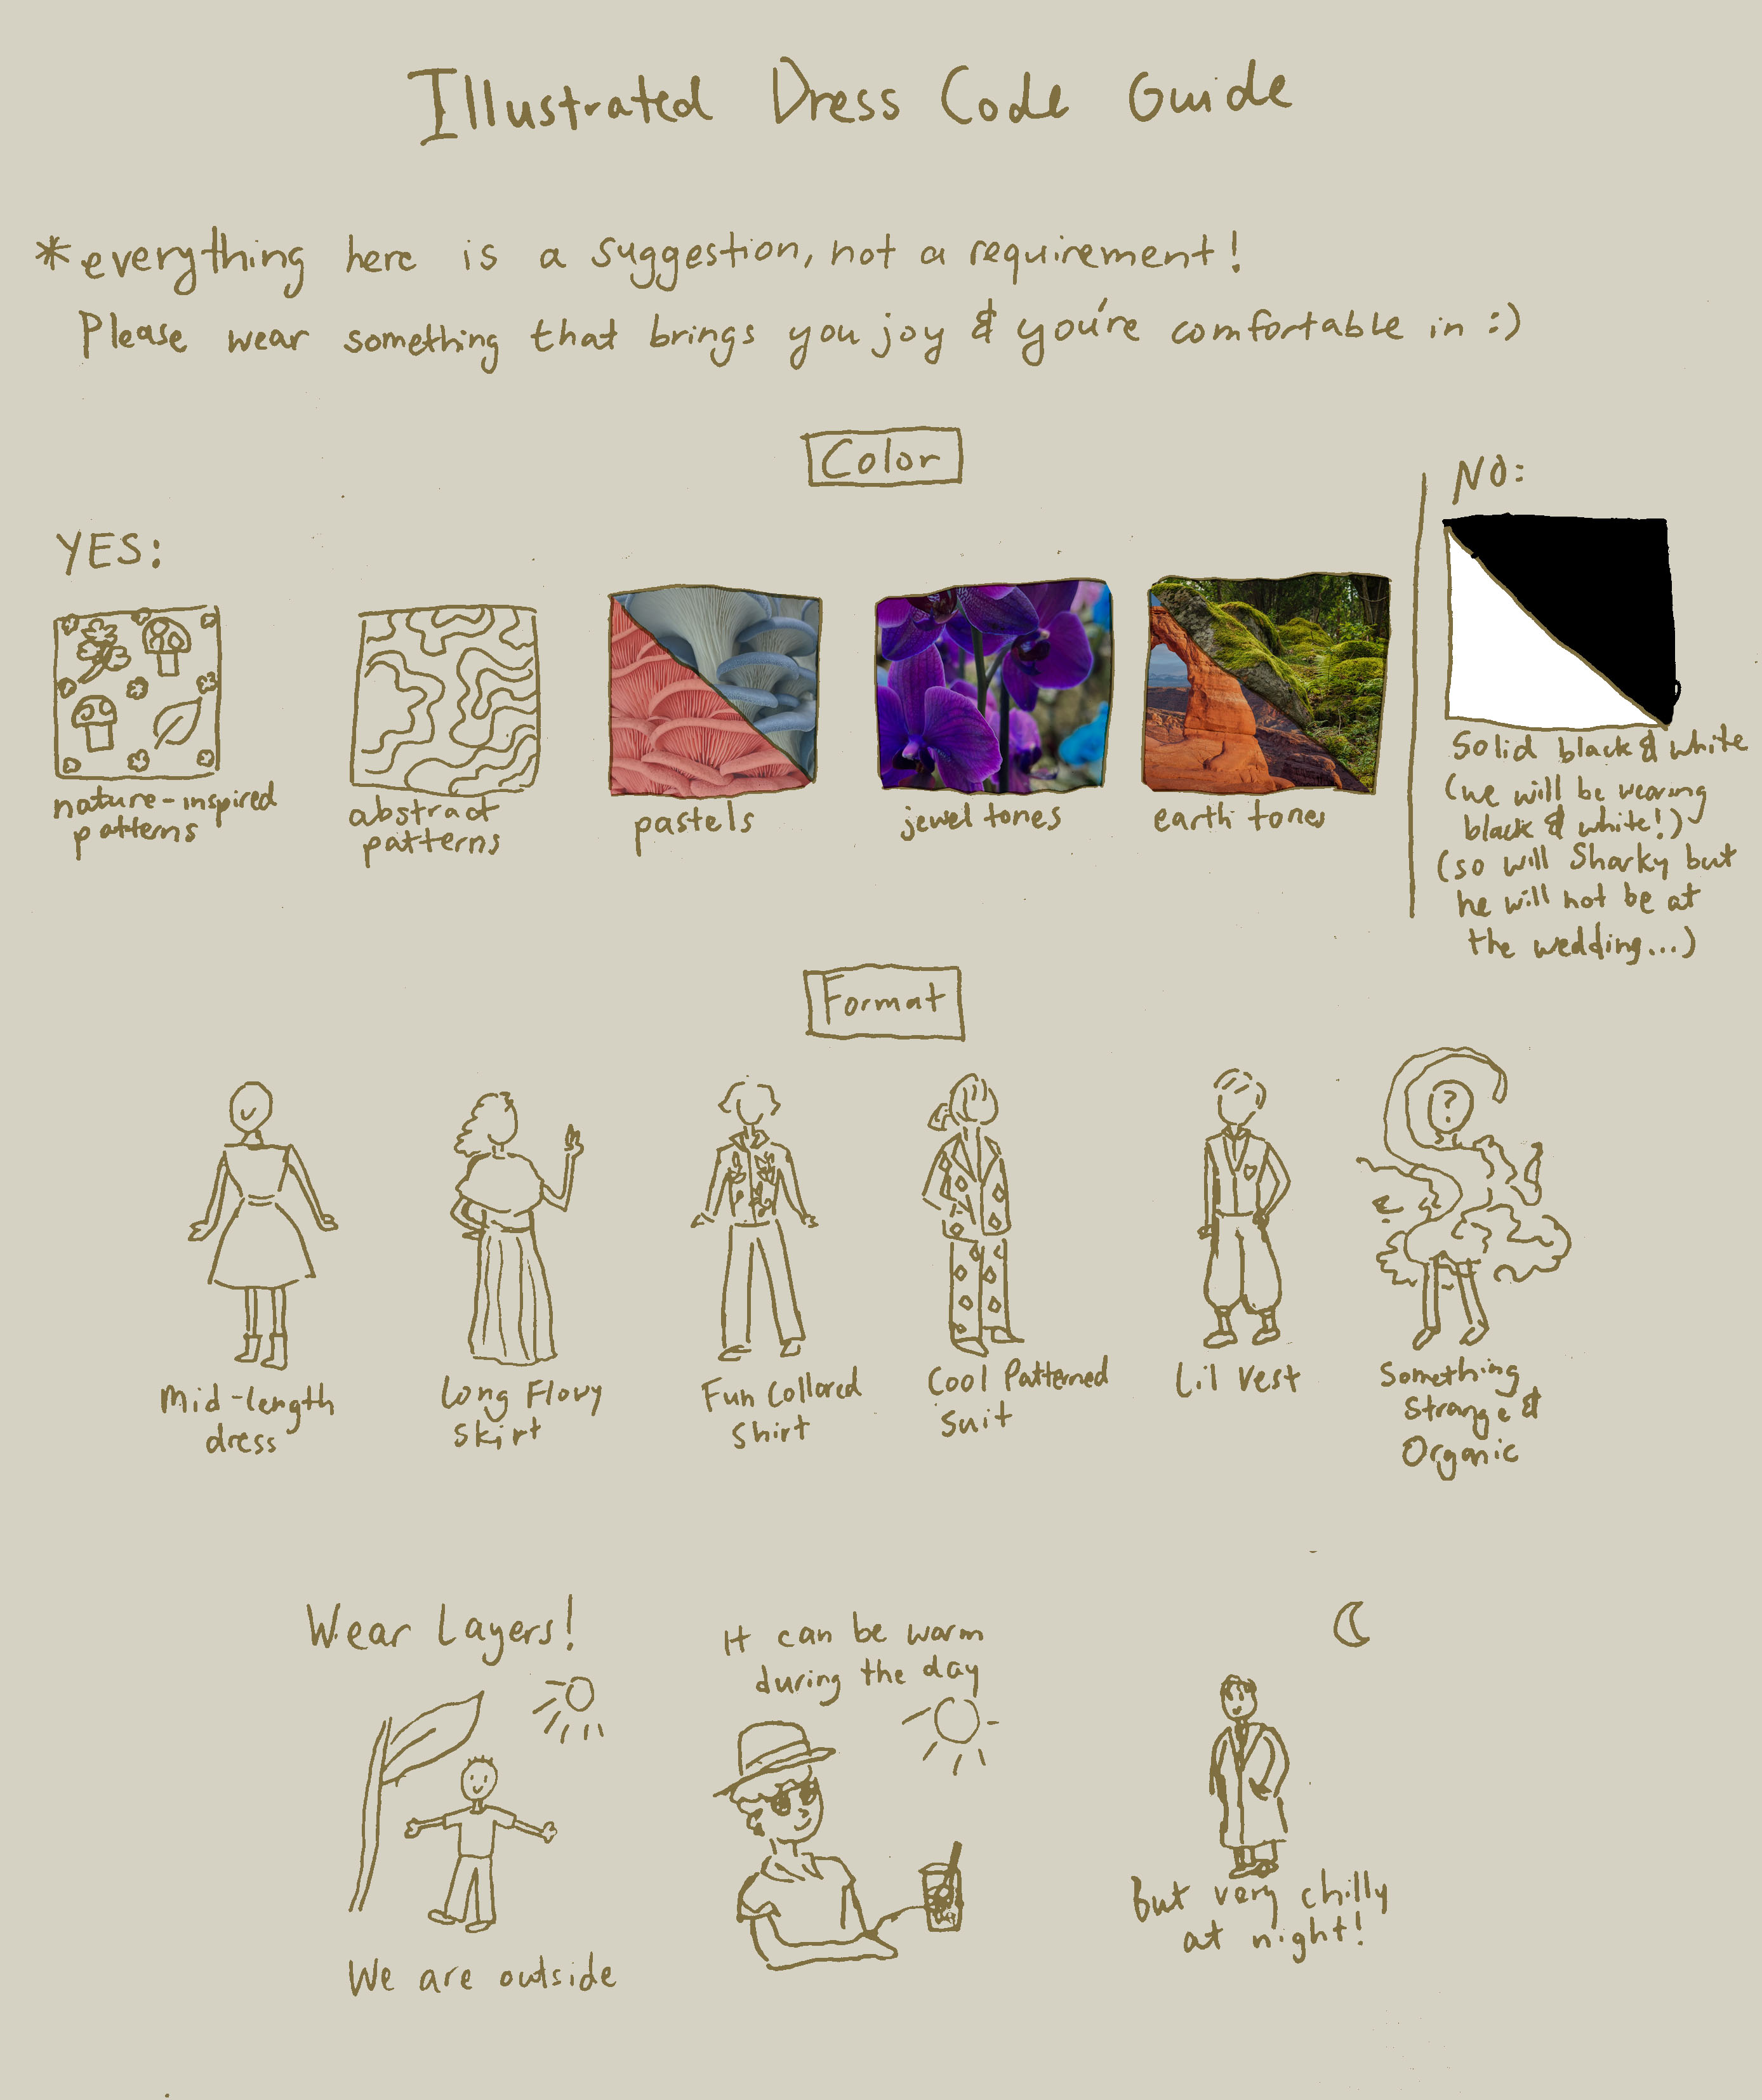 Illustrated Dress Code Guide
*everything here is a suggestion, not a requirement!
Please wear something that brings you joy & you're comfortable in :)
Color
YES:
nature-inspired
patterns
abstract
patterns
pastels
jewel tones
earth tones
NO:
Solid black & white
(we will be wearing
black & white!)
(so will Sharky but
he will not be at
the wedding...)
Format
Mid-length
dress
Long Flowy
Skirt
Fun Collared
Shirt
Cool Patterned
Suit
Lil Vest
?
Something
Strange &
Organic
Wear Layers!
We are outside
It can be warm
during the day
But very chilly
at night!